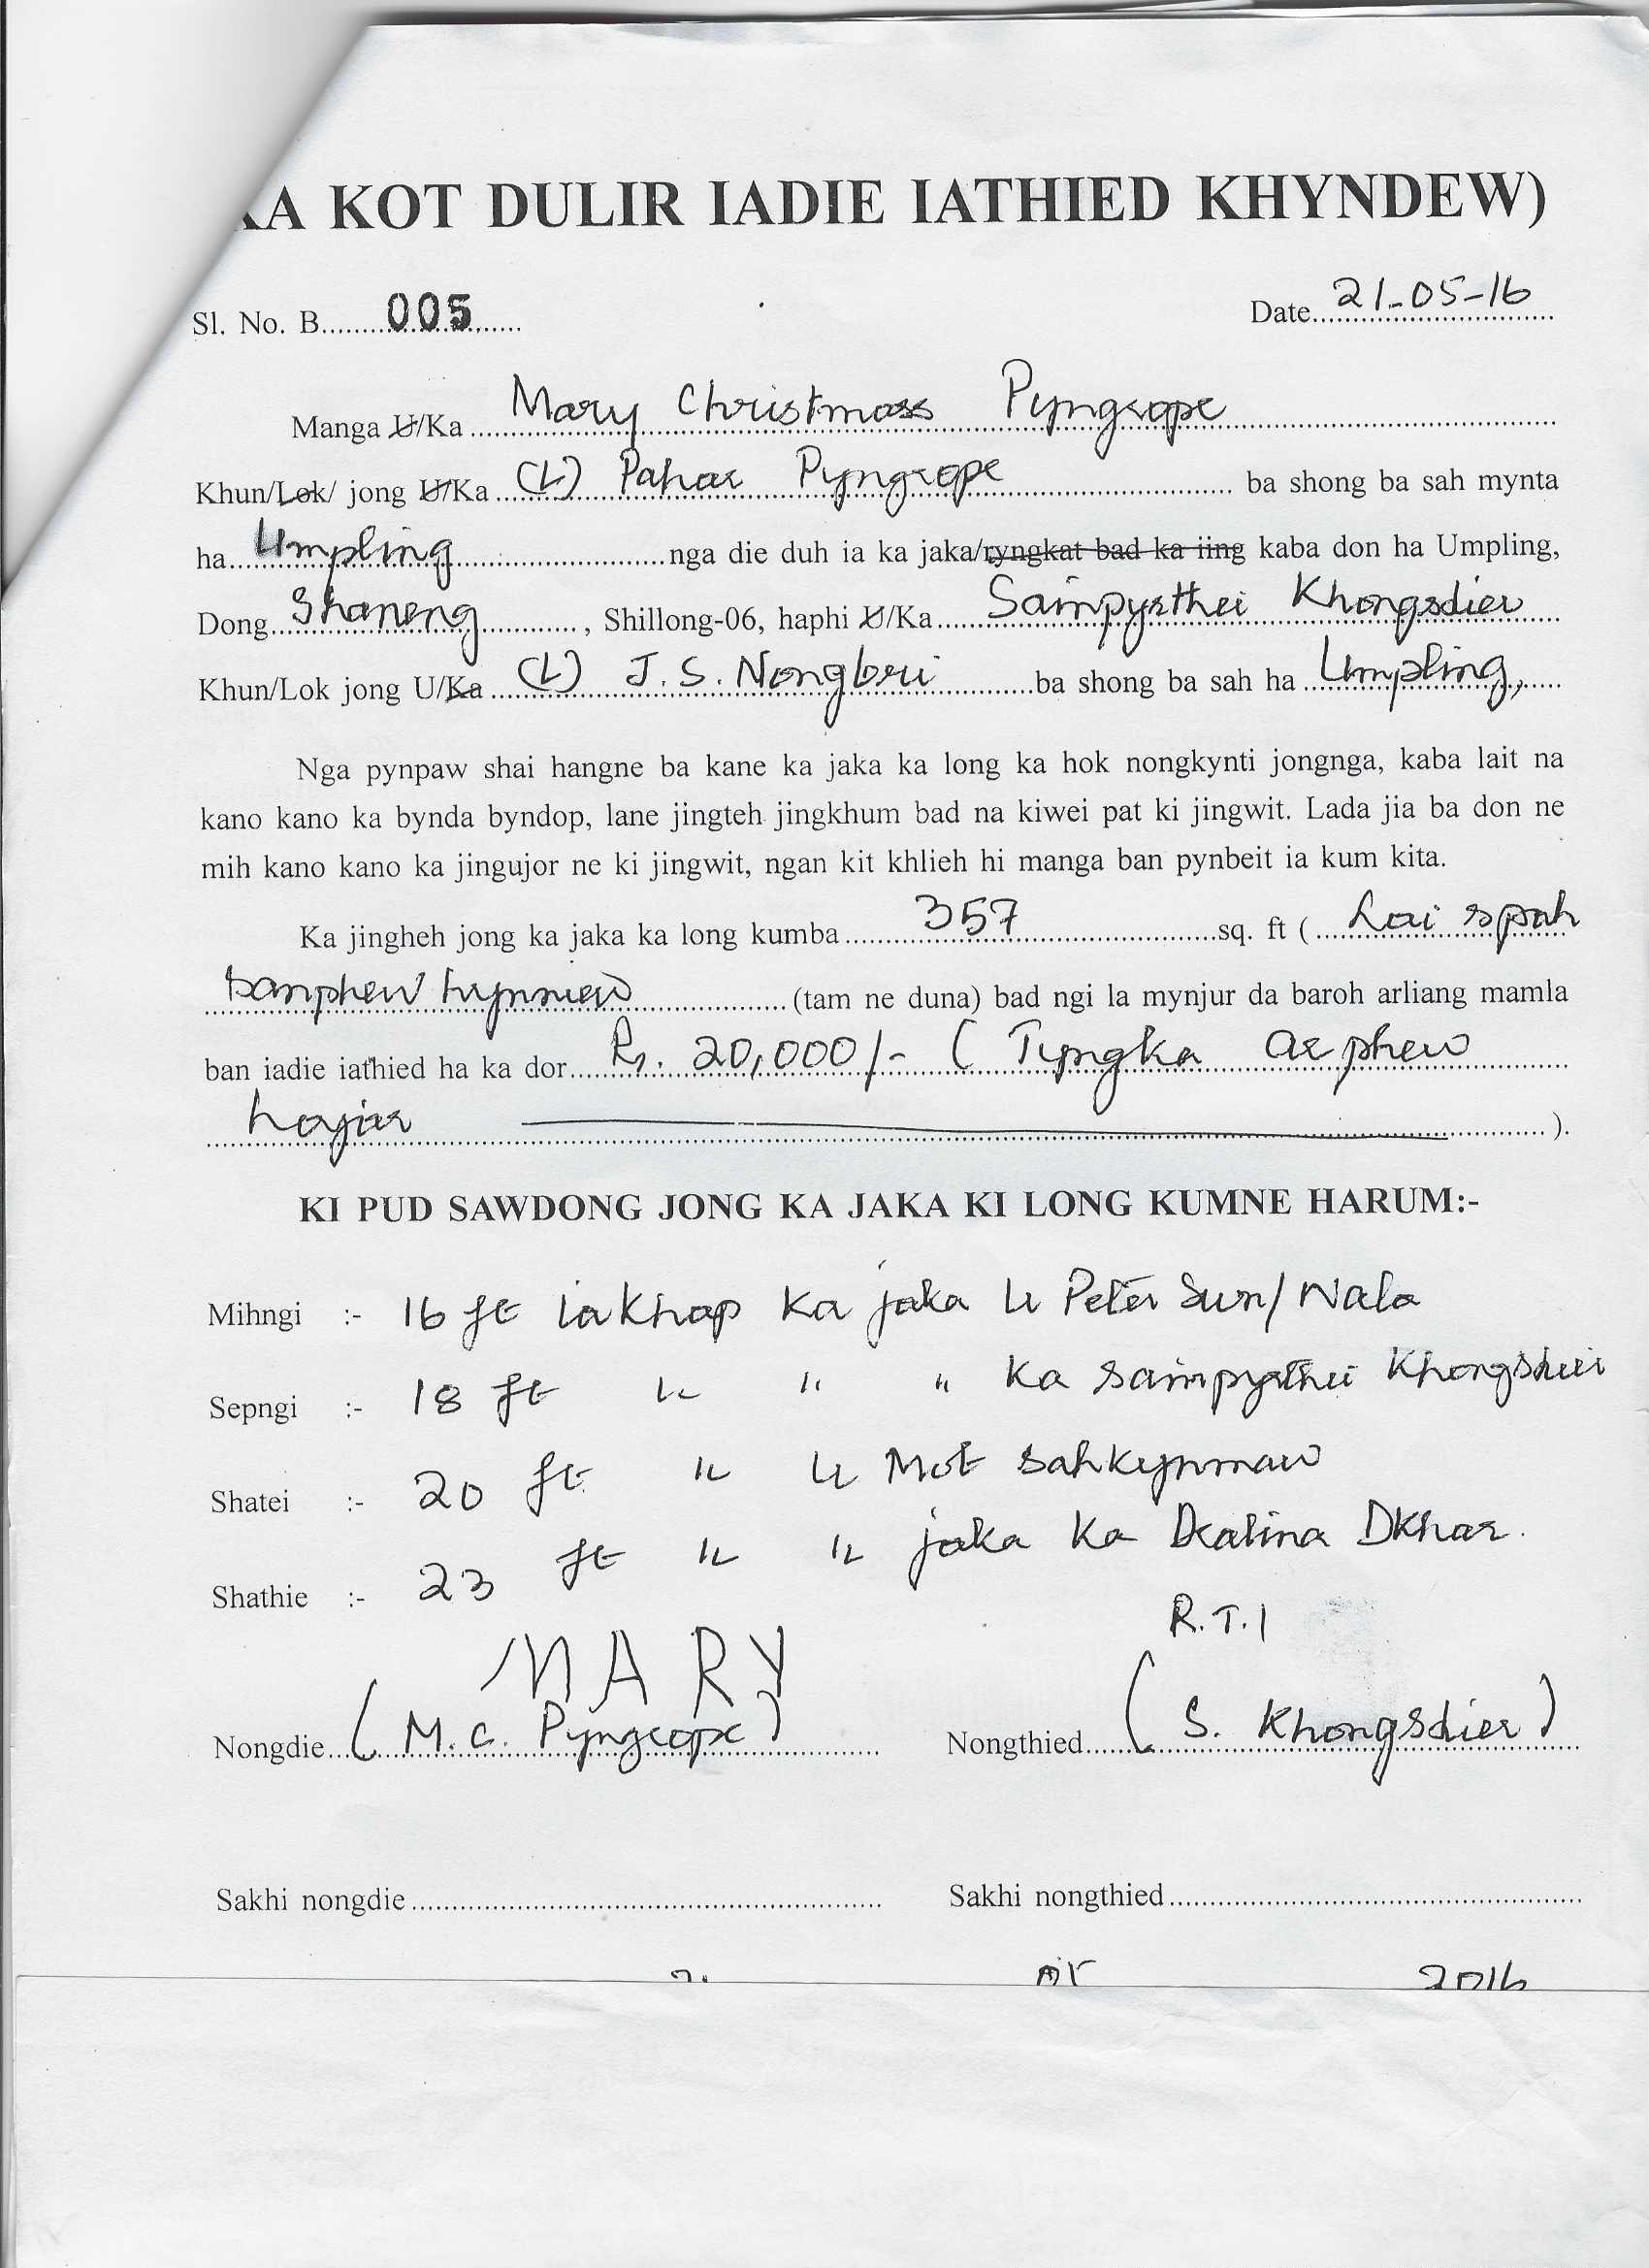 KA KOT DULIR IADIE IATHIED KHYNDEW)
Sl. No. B........005........ Date 21-05-16
Manga U/Ka Mary Christmass Pyngrope
Khun/Lok/ jong U/Ka (L) Pahar Pyngrope ba shong ba sah mynta
ha Umpling nga die duh ia ka jaka/ryngkat bad ka iing kaba don ha Umpling,
Dong Shaneng, Shillong-06, haphi U/Ka Sainpyrthei Khongsdier
Khun/Lok jong U/Ka (L) J.S. Nongbri ba shong ba sah ha Umpling,
Nga pynpaw shai hangne ba kane ka jaka ka long ka hok nongkynti jongnga, kaba lait na
kano kano ka bynda byndop, lane jingteh jingkhum bad na kiwei pat ki jingwit. Lada jia ba don ne
mih kano kano ka jingujor ne ki jingwit, ngan kit khlieh hi manga ban pynbeit ia kum kita.
Ka jingheh jong ka jaka ka long kumba 357 sq. ft ( Lai spah
sanphew hynniew (tam ne duna) bad ngi la mynjur da baroh arliang mamla
ban iadie iathied ha ka dor Rs. 20,000/- ( Tyngka arphew
hajar ).
KI PUD SAWDONG JONG KA JAKA KI LONG KUMNE HARUM:-
Mihngi :- 16 ft iakhap ka jaka U Peter Sun/Nala
Sepngi :- 18 ft " " " Ka Sainpyrthei Khongsdier
Shatei :- 20 ft " U Mot Sahkynmaw
Shathie :- 23 ft " " jaka Ka Dalina Dkhar.
R.T.I
MARY
Nongdie (M.C. Pyngrope) Nongthied (S. Khongsdier)
Sakhi nongdie Sakhi nongthied
2016